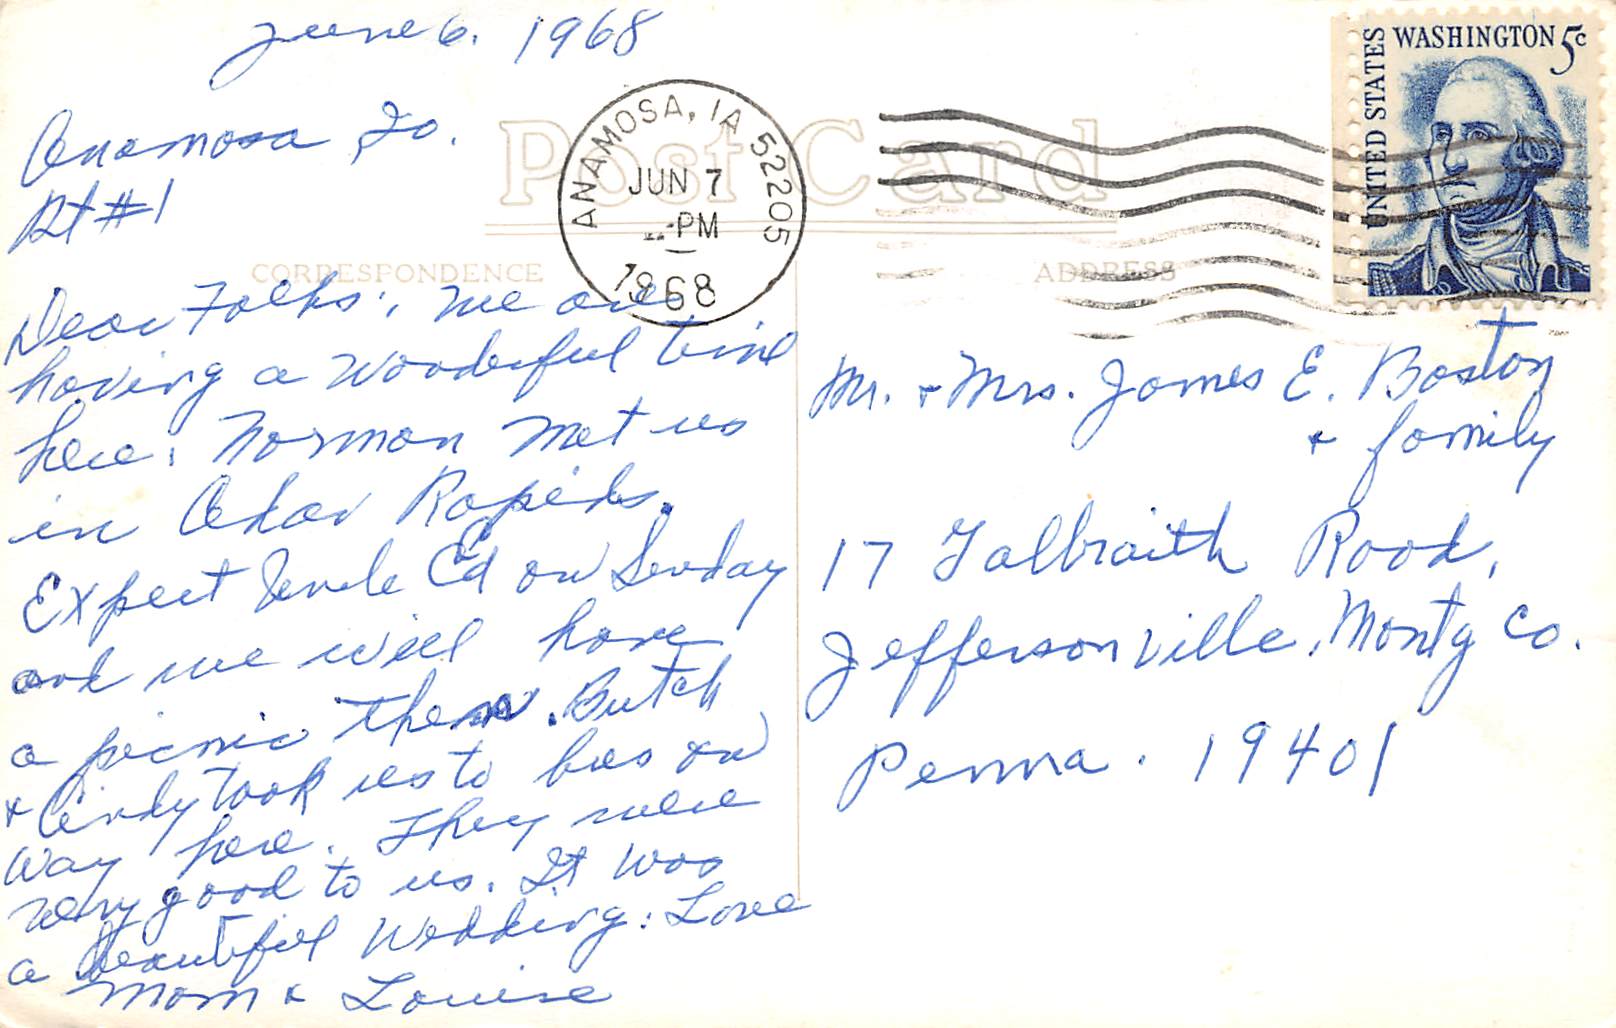 June 6. 1968
Anamosa Io.
Rt #1
Post Card
CORRESPONDENCE
ADDRESS
ANAMOSA, IA 52205
JUN 7
PM
1968
UNITED STATES
WASHINGTON 5c
Dear Folks:, We are
having a wonderful time
here. Norman met us
in Cedar Rapids.
Expect Uncle Ed on Sunday
and we will have
a picnic then. Butch
& Cindy took us to bus on
way here. They were
very good to us. It was
a beautiful Wedding: Love
Mom & Louise
Mr. & Mrs. James E. Boston
& family
17 Galbraith Road,
Jeffersonville, Montg Co.
Penna. 19401